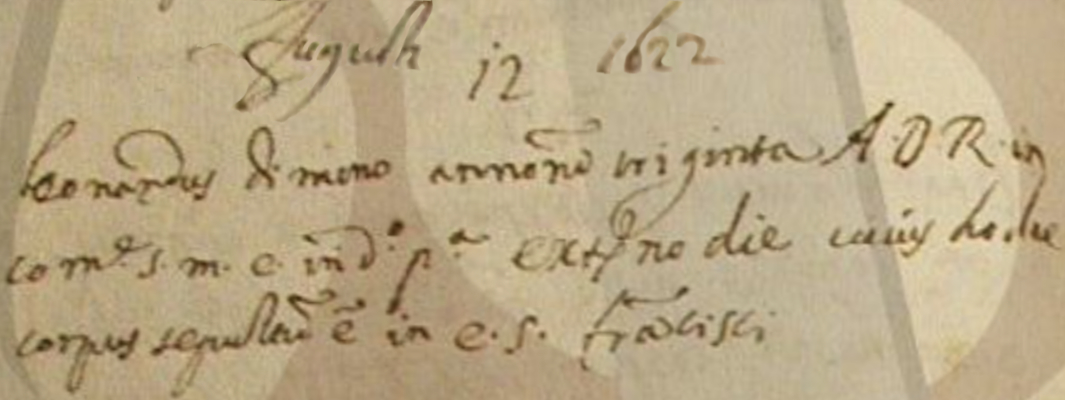 Augusti 12 1622
Leonardus di mino annorũ triginta A D R in
com.e s. m. e. in d.o p.a externo die cuius hodie
corpus sepultũ ẽ in e. s. frãcisci